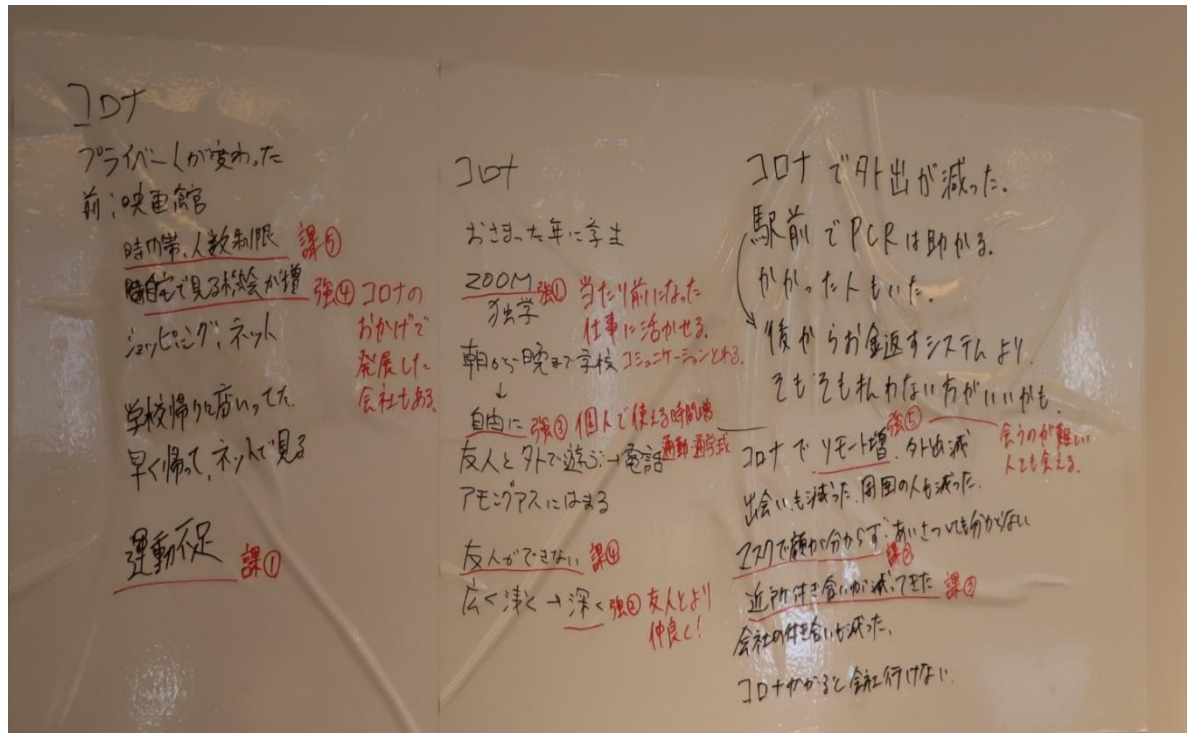 コロナ
プライベートが変わった
前：映画館
時間帯、人数制限 課⑤
自宅で見る機会が増 強④ コロナの
おかげで
発展した
会社もある。
ショッピング：ネット
学校帰りに店いってた。
早く帰って、ネットで見る
運動不足 課①
コロナ
おさまった年に学生
ZOOM 強① 当たり前になった
独学 仕事に活かせる。
朝から晩まで学校 コミュニケーションとれる。
↓
自由に 強③ 個人で使える時間増
通勤 通学
友人と外で遊ぶ→電話
アモングアスにはまる
友人ができない 課④
広く浅く→深く 強② 友人とより
仲良く！
コロナで外出が減った。
駅前でPCRは助かる。
かかった人もいた。
後からお金返すシステムより、
そもそも払わない方がいいかも。
コロナでリモート増、外出減 強⑤ 会うのが難しい
人とも会える。
出会いも減った。周囲の人も減った。
マスクで顔が分からず、あいさつしても分からない
課②
近所付き合いが減ってきた 課③
会社の付き合いも減った。
コロナかかると会社行けない。